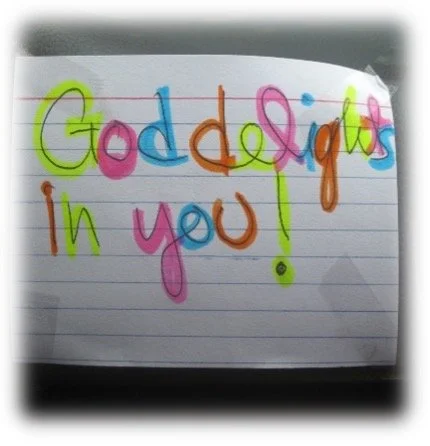 God delights
in you!